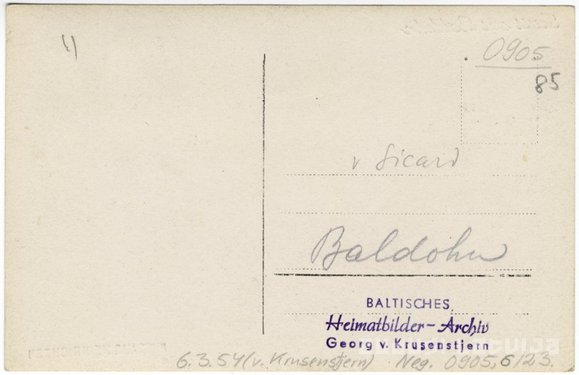 4)
0905
85
v Sicard
Baldohn
BALTISCHES
Heimatbilder-Archiv
Georg v. Krusenstjern
6.3.54 (v. Krusenstjern) Neg. 0905, 6/23.